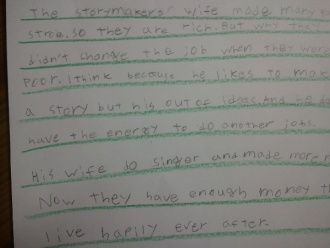 The storymakers' wife made many
stroe. So they are rich. But why the
didn't change the job when they wer
poor. I think because he likes to ma
a story but his out of ideas. And he d
have the energy to do another jobs.
His wife do singer and made mor
Now they have enough money t
live happily ever after.